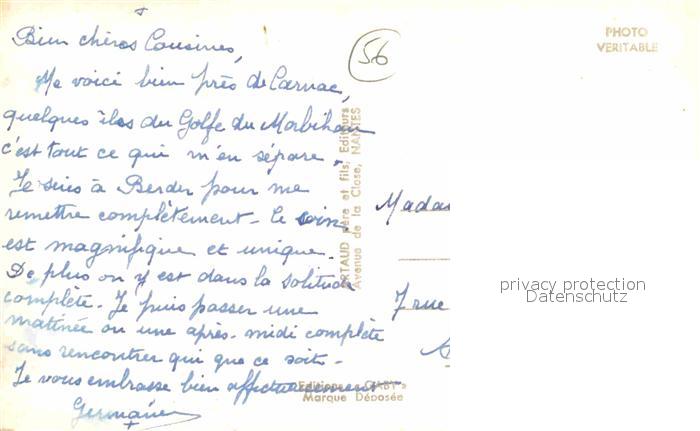 Bien chères Cousines,
56
PHOTO
VERITABLE
Me voici bien près de Carnac,
quelques îles du Golfe du Morbihan
c'est tout ce qui m'en sépare.
Je suis à Berder pour me
remettre complètement. Le
est magnifique et unique.
De plus on y est dans la solitude
complète. Je puis passer une
matinée ou une après-midi complète
sans rencontrer qui que ce soit.
Je vous embrasse bien affectueusement
Germaine
ARTAUD père et fils, Editeurs
Avenue de la Close, NANTES
Editions "GABY"
Marque Déposée
7 rue
privacy protection
Datenschutz